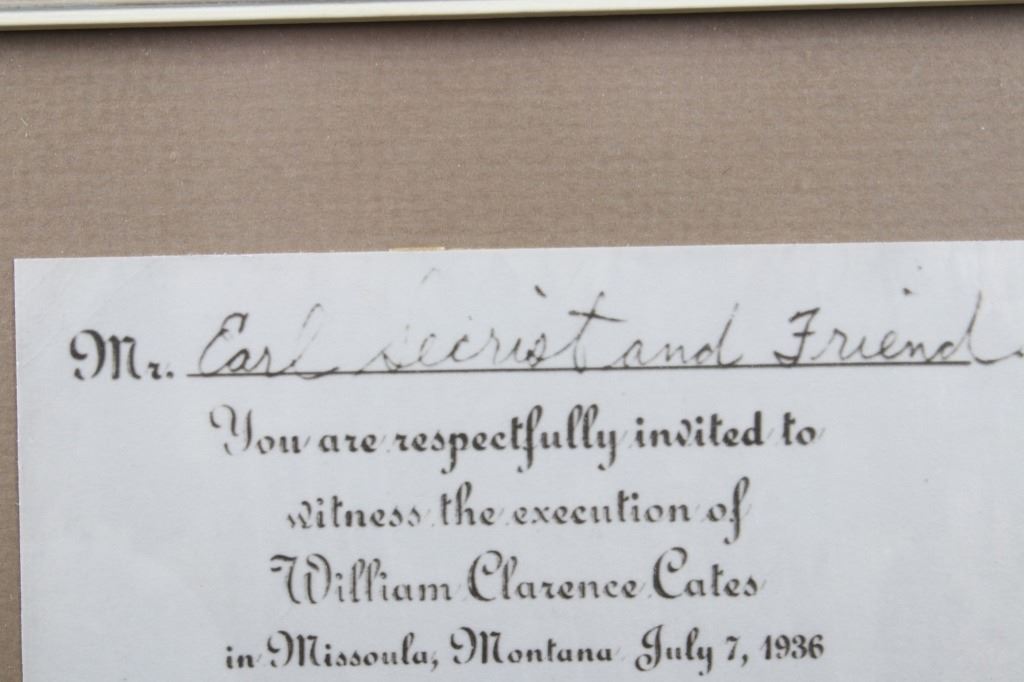 Mr. Earl Secrist and Friend
You are respectfully invited to
witness the execution of
William Clarence Cates
in Missoula, Montana July 7, 1936